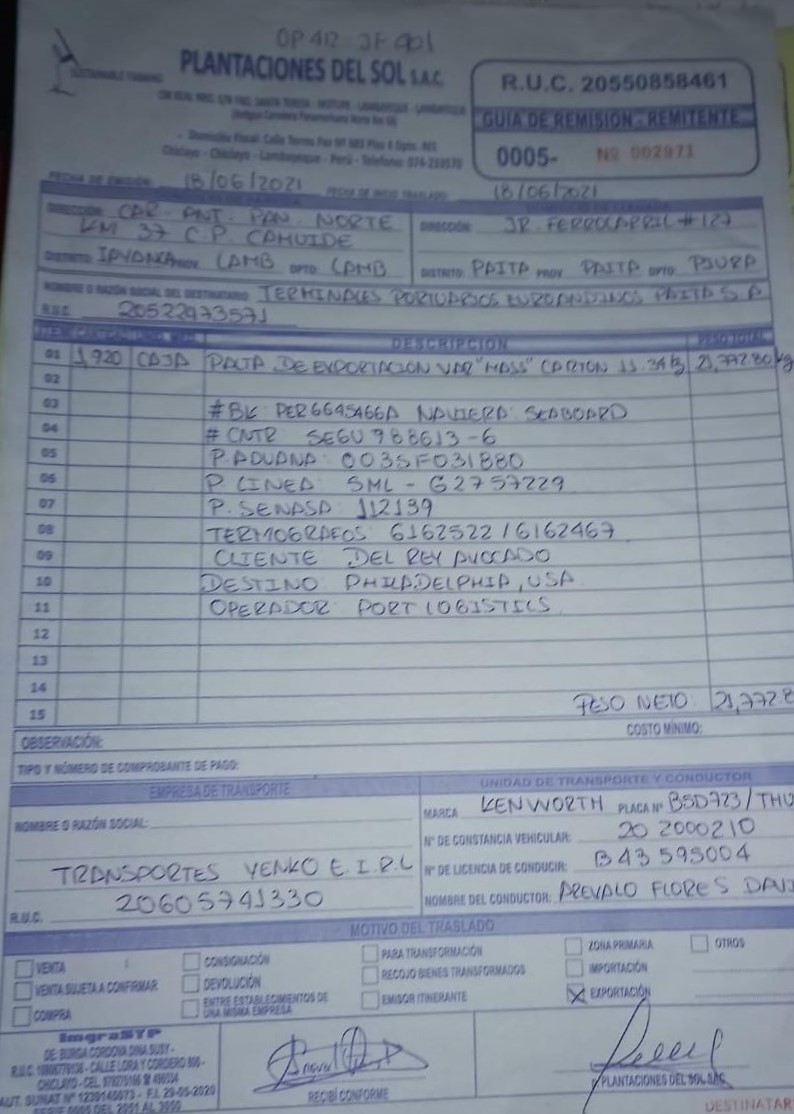 OP 412 JF 901
PLANTACIONES DEL SOL S.A.C
R.U.C. 20550858461
GUIA DE REMISION - REMITENTE
0005- Nº 002971
Chiclayo - Chiclayo - Lambayeque - Perú - Telefono:
FECHA DE EMISIÓN: 18/06/2021 FECHA DE INICIO TRASLADO: 18/06/2021
DIRECCIÓN: CAR. ANT. PAN. NORTE
KM 37 C.P. CAHUIDE
DISTRITO: PROV. LAMB DPTO. LAMB
DIRECCIÓN: JR. FERROCARRIL # 127
DISTRITO: PAITA PROV PAITA DPTO. PIURA
NOMBRE O RAZÓN SOCIAL DEL DESTINATARIO TERMINALES PORTUARIOS EUROANDINOS PAITA S.A
R.U.C. 20522473571
DESCRIPCION PESO TOTAL
01 1,920 CAJA PALTA DE EXPORTACION VAR "HASS" CARTON 11.34 kg 21,772.80 kg
02
03 # BK PER6645466A NAVIERA: SEABOARD
04 # CNTR SEGU 988613-6
05 P. ADUANA: 003SF031880
06 P. LINEA SML - G2757229
07 P. SENASA: 112139
08 TERMOGRAFOS 6162522 / 6162467
09 CLIENTE DEL REY AVOCADO
10 DESTINO PHILADELPHIA, USA
11 OPERADOR PORT LOGISTICS
12
13
14
15 PESO NETO: 21,772.8
OBSERVACIÓN: COSTO MÍNIMO:
TIPO Y NÚMERO DE COMPROBANTE DE PAGO:
EMPRESA DE TRANSPORTE
NOMBRE O RAZÓN SOCIAL:
TRANSPORTES YENKO E.I.R.L
R.U.C. 20605741330
UNIDAD DE TRANSPORTE Y CONDUCTOR
MARCA KENWORTH PLACA Nº B5D723/THU
Nº DE CONSTANCIA VEHICULAR: 20 2000210
Nº DE LICENCIA DE CONDUCIR: B43595004
NOMBRE DEL CONDUCTOR: AREVALO FLORES DAVI
MOTIVO DEL TRASLADO
VENTA CONSIGNACIÓN PARA TRANSFORMACIÓN ZONA PRIMARIA OTROS
VENTA SUJETA A CONFIRMAR DEVOLUCIÓN RECOJO BIENES TRANSFORMADOS IMPORTACIÓN
COMPRA ENTRE ESTABLECIMIENTOS DE UNA MISMA EMPRESA EMISOR ITINERANTE EXPORTACIÓN
ImgraSTP
DE: BURGA CORDOVA DINA SUSY -
CALLE LORA Y CORDERO
CHICLAYO - CEL.
AUT. SUNAT Nº F.I. 29-05-2020
SERIE 0005 DEL 2951 AL
RECIBÍ CONFORME
P/PLANTACIONES DEL SOL SAC
DESTINATAR